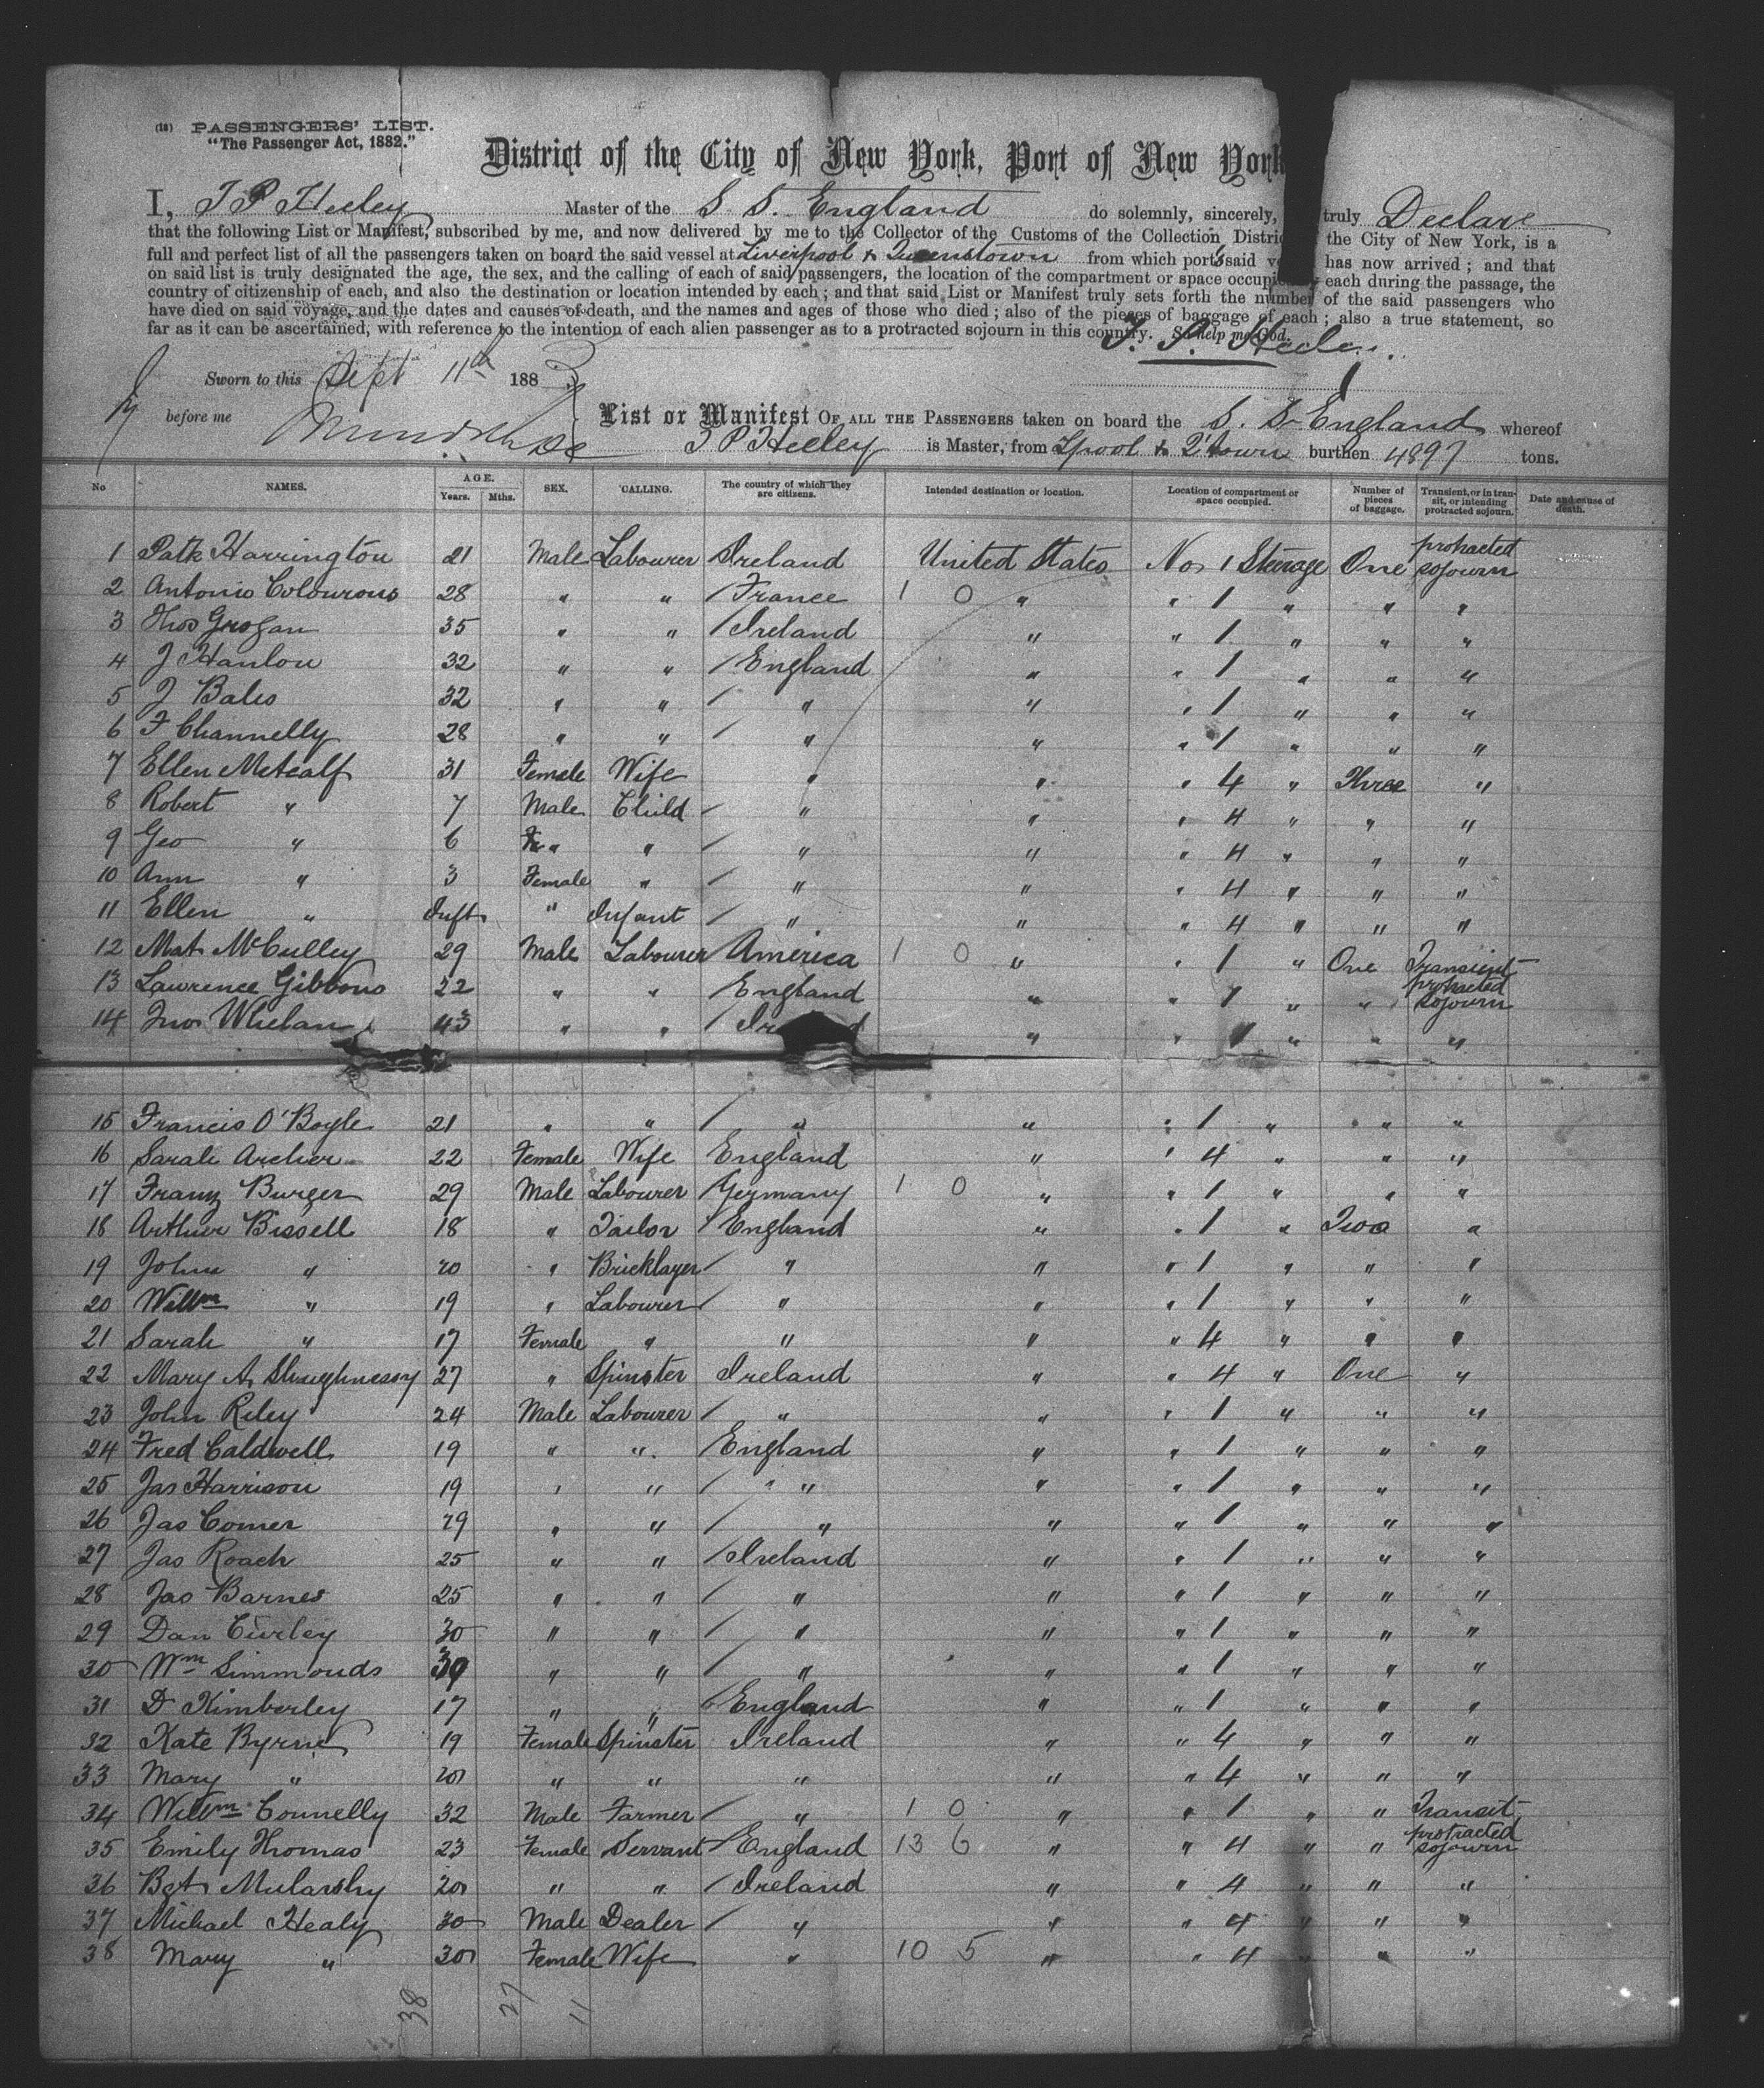 (18) PASSENGERS' LIST.
"The Passenger Act, 1882."
District of the City of New York, Port of New York
I, T P Heeley Master of the S S. England do solemnly, sincerely, truly Declare
that the following List or Manifest, subscribed by me, and now delivered by me to the Collector of the Customs of the Collection Distric the City of New York, is a
full and perfect list of all the passengers taken on board the said vessel at Liverpool & Queenstown from which ports said ve has now arrived; and that
on said list is truly designated the age, the sex, and the calling of each of said passengers, the location of the compartment or space occupied by each during the passage, the
country of citizenship of each, and also the destination or location intended by each; and that said List or Manifest truly sets forth the number of the said passengers who
have died on said voyage, and the dates and causes of death, and the names and ages of those who died; also of the pieces of baggage of each; also a true statement, so
far as it can be ascertained, with reference to the intention of each alien passenger as to a protracted sojourn in this country. So help me God.
T. P. Heeley
Sworn to this Sept 11th 1883
before me
List or Manifest OF ALL THE PASSENGERS taken on board the S. S. England whereof
T P Heeley is Master, from Lpool & Q'town burthen 4897 tons.
No NAMES. AGE. Years. Mths. SEX. CALLING. The country of which they are citizens. Intended destination or location. Location of compartment or space occupied. Number of pieces of baggage. Transient, or in transit, or intending protracted sojourn. Date and cause of death.
1 Patk Harrington 21 Male Labourer Ireland United States No 1 Steerage One protracted sojourn
2 Antonio Colourous 28 " " / France 1 0 " " 1 " " "
3 Thos Grogan 35 " " / Ireland " " 1 " " "
4 J Hanlon 32 " " / England " " 1 " " "
5 J Bales 32 " " / " " " 1 " " "
6 F Channelly 28 " " / " " " 1 " " "
7 Ellen Metcalf 31 Female Wife " " " 4 " Three "
8 Robert " 7 Male Child / " " " 4 " " "
9 Geo " 6 " " / " " " 4 " " "
10 Ann " 3 Female " / " " " 4 " " "
11 Ellen " Inft " Infant / " " " 4 " " "
12 Mat McCulley 29 Male Labourer America 1 0 " " 1 " One Transient
13 Lawrence Gibbons 22 " " England " " 1 " " protracted sojourn
14 Jno Whelan 43 " " / " " 1 " " "
15 Francis O'Boyle 21 " " / " " " 1 " " "
16 Sarah Archer 22 Female Wife England " " 4 " " "
17 Franz Burger 29 Male Labourer Germany 1 0 " " 1 " " "
18 Arthur Bissell 18 " Tailor / England " " 1 " Two "
19 John " 20 " Bricklayer / " " " 1 " " "
20 Willm " 19 " Labourer / " " " 1 " " "
21 Sarah " 17 Female " " " " 4 " " "
22 Mary A Shaughnessy 27 " Spinster Ireland " " 4 " One "
23 John Riley 24 Male Labourer / " " " 1 " " "
24 Fred Caldwell 19 " " England " " 1 " " "
25 Jas Harrison 19 " " / " " " 1 " " "
26 Jas Comer 29 " " / " " " 1 " " "
27 Jas Roach 25 " " / Ireland " " 1 " " "
28 Jas Barnes 25 " " / " " " 1 " " "
29 Dan Curley 30 " " / " " " 1 " " "
30 Wm Simmonds 30 " " / " " " 1 " " "
31 D Kimberley 17 " " England " " 1 " " "
32 Kate Byrne 19 Female Spinster Ireland " " 4 " " "
33 Mary " 20 " " " " " 4 " " "
34 Willm Connelly 32 Male Farmer / " 1 0 " " 1 " " Transit
35 Emily Thomas 23 Female Servant / England 13 6 " " 4 " " protracted sojourn
36 Bgt Mularshy 20 " " / Ireland " " 4 " " "
37 Michael Healy 30 Male Dealer / " " " 4 " " "
38 Mary " 30 Female Wife " 10 5 " " 4 " " "
38 27 11